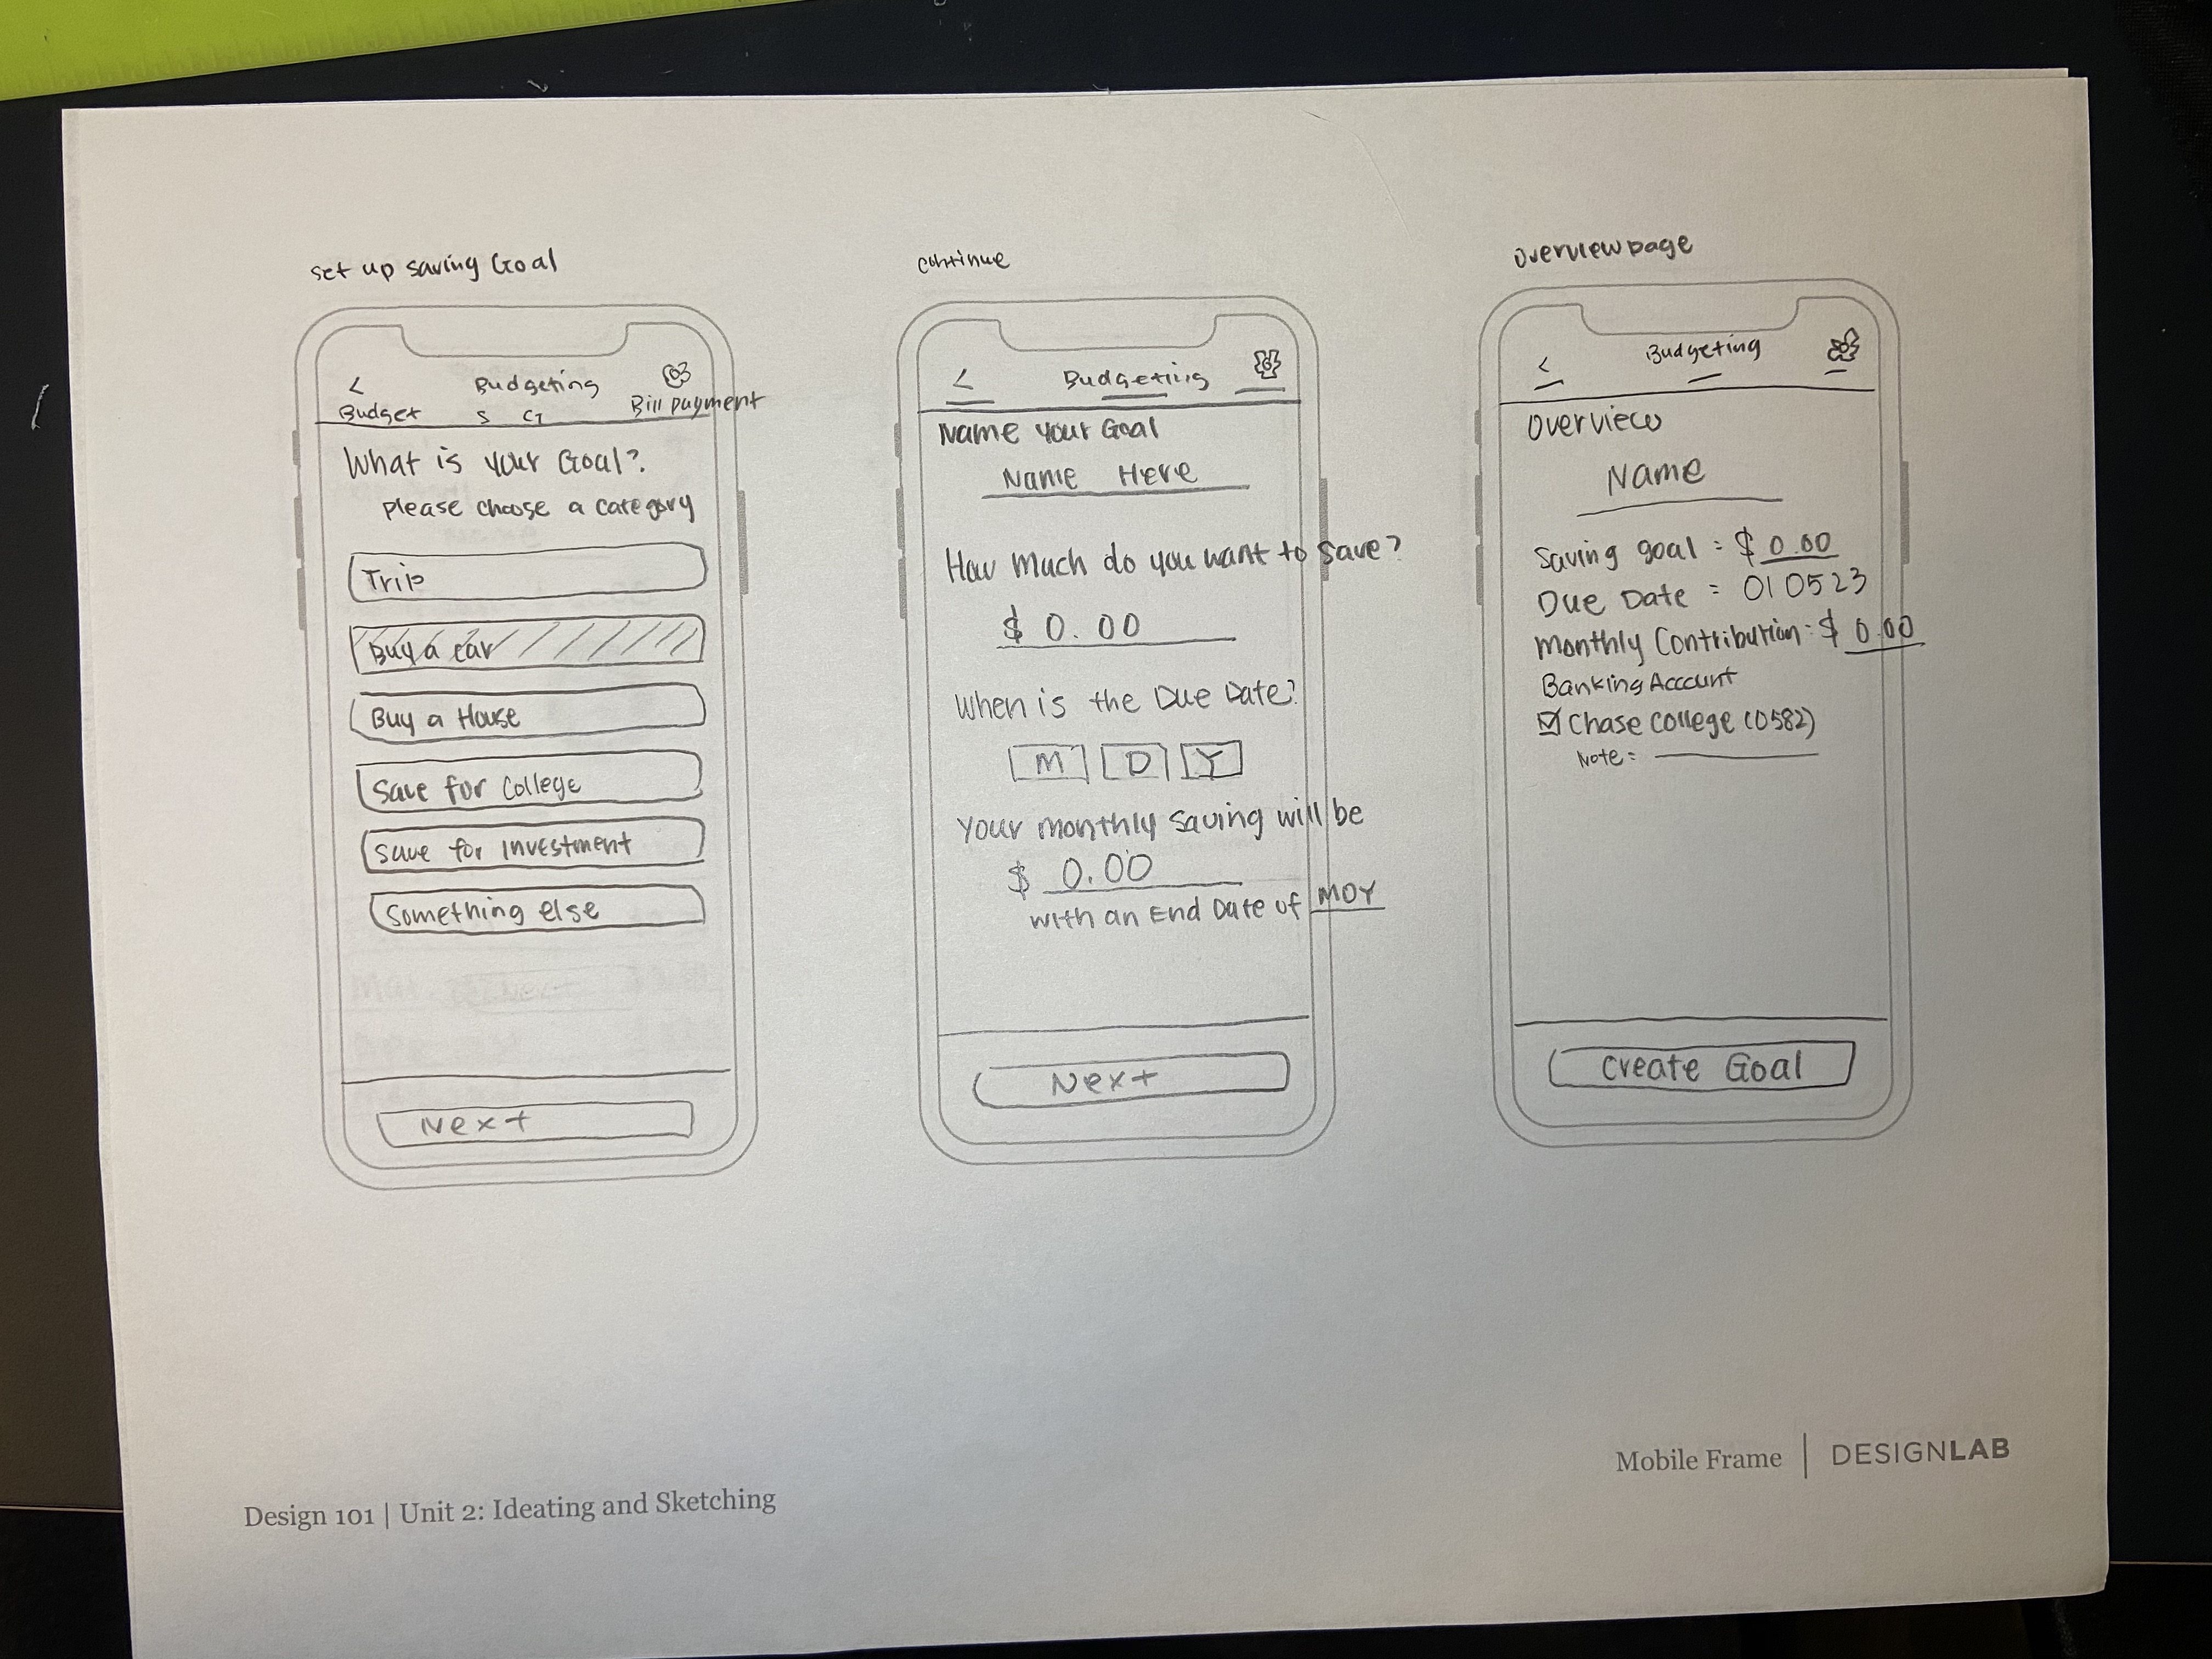 set up saving Goal
< Budgeting
Budget S G Bill payment
What is your Goal?
please choose a category
Trip
Buy a car
Buy a House
Save for College
Save for investment
Something else
Next
continue
< Budgeting
Name your Goal
Name Here
How much do you want to save?
$ 0.00
When is the Due Date?
M D Y
Your monthly saving will be
$ 0.00
with an End Date of MDY
Next
overview page
< Budgeting
Overview
Name
Saving goal = $ 0.00
Due Date = 010523
Monthly Contribution: $ 0.00
Banking Account
Chase College (0582)
Note:
Create Goal
Design 101 | Unit 2: Ideating and Sketching
Mobile Frame | DESIGNLAB